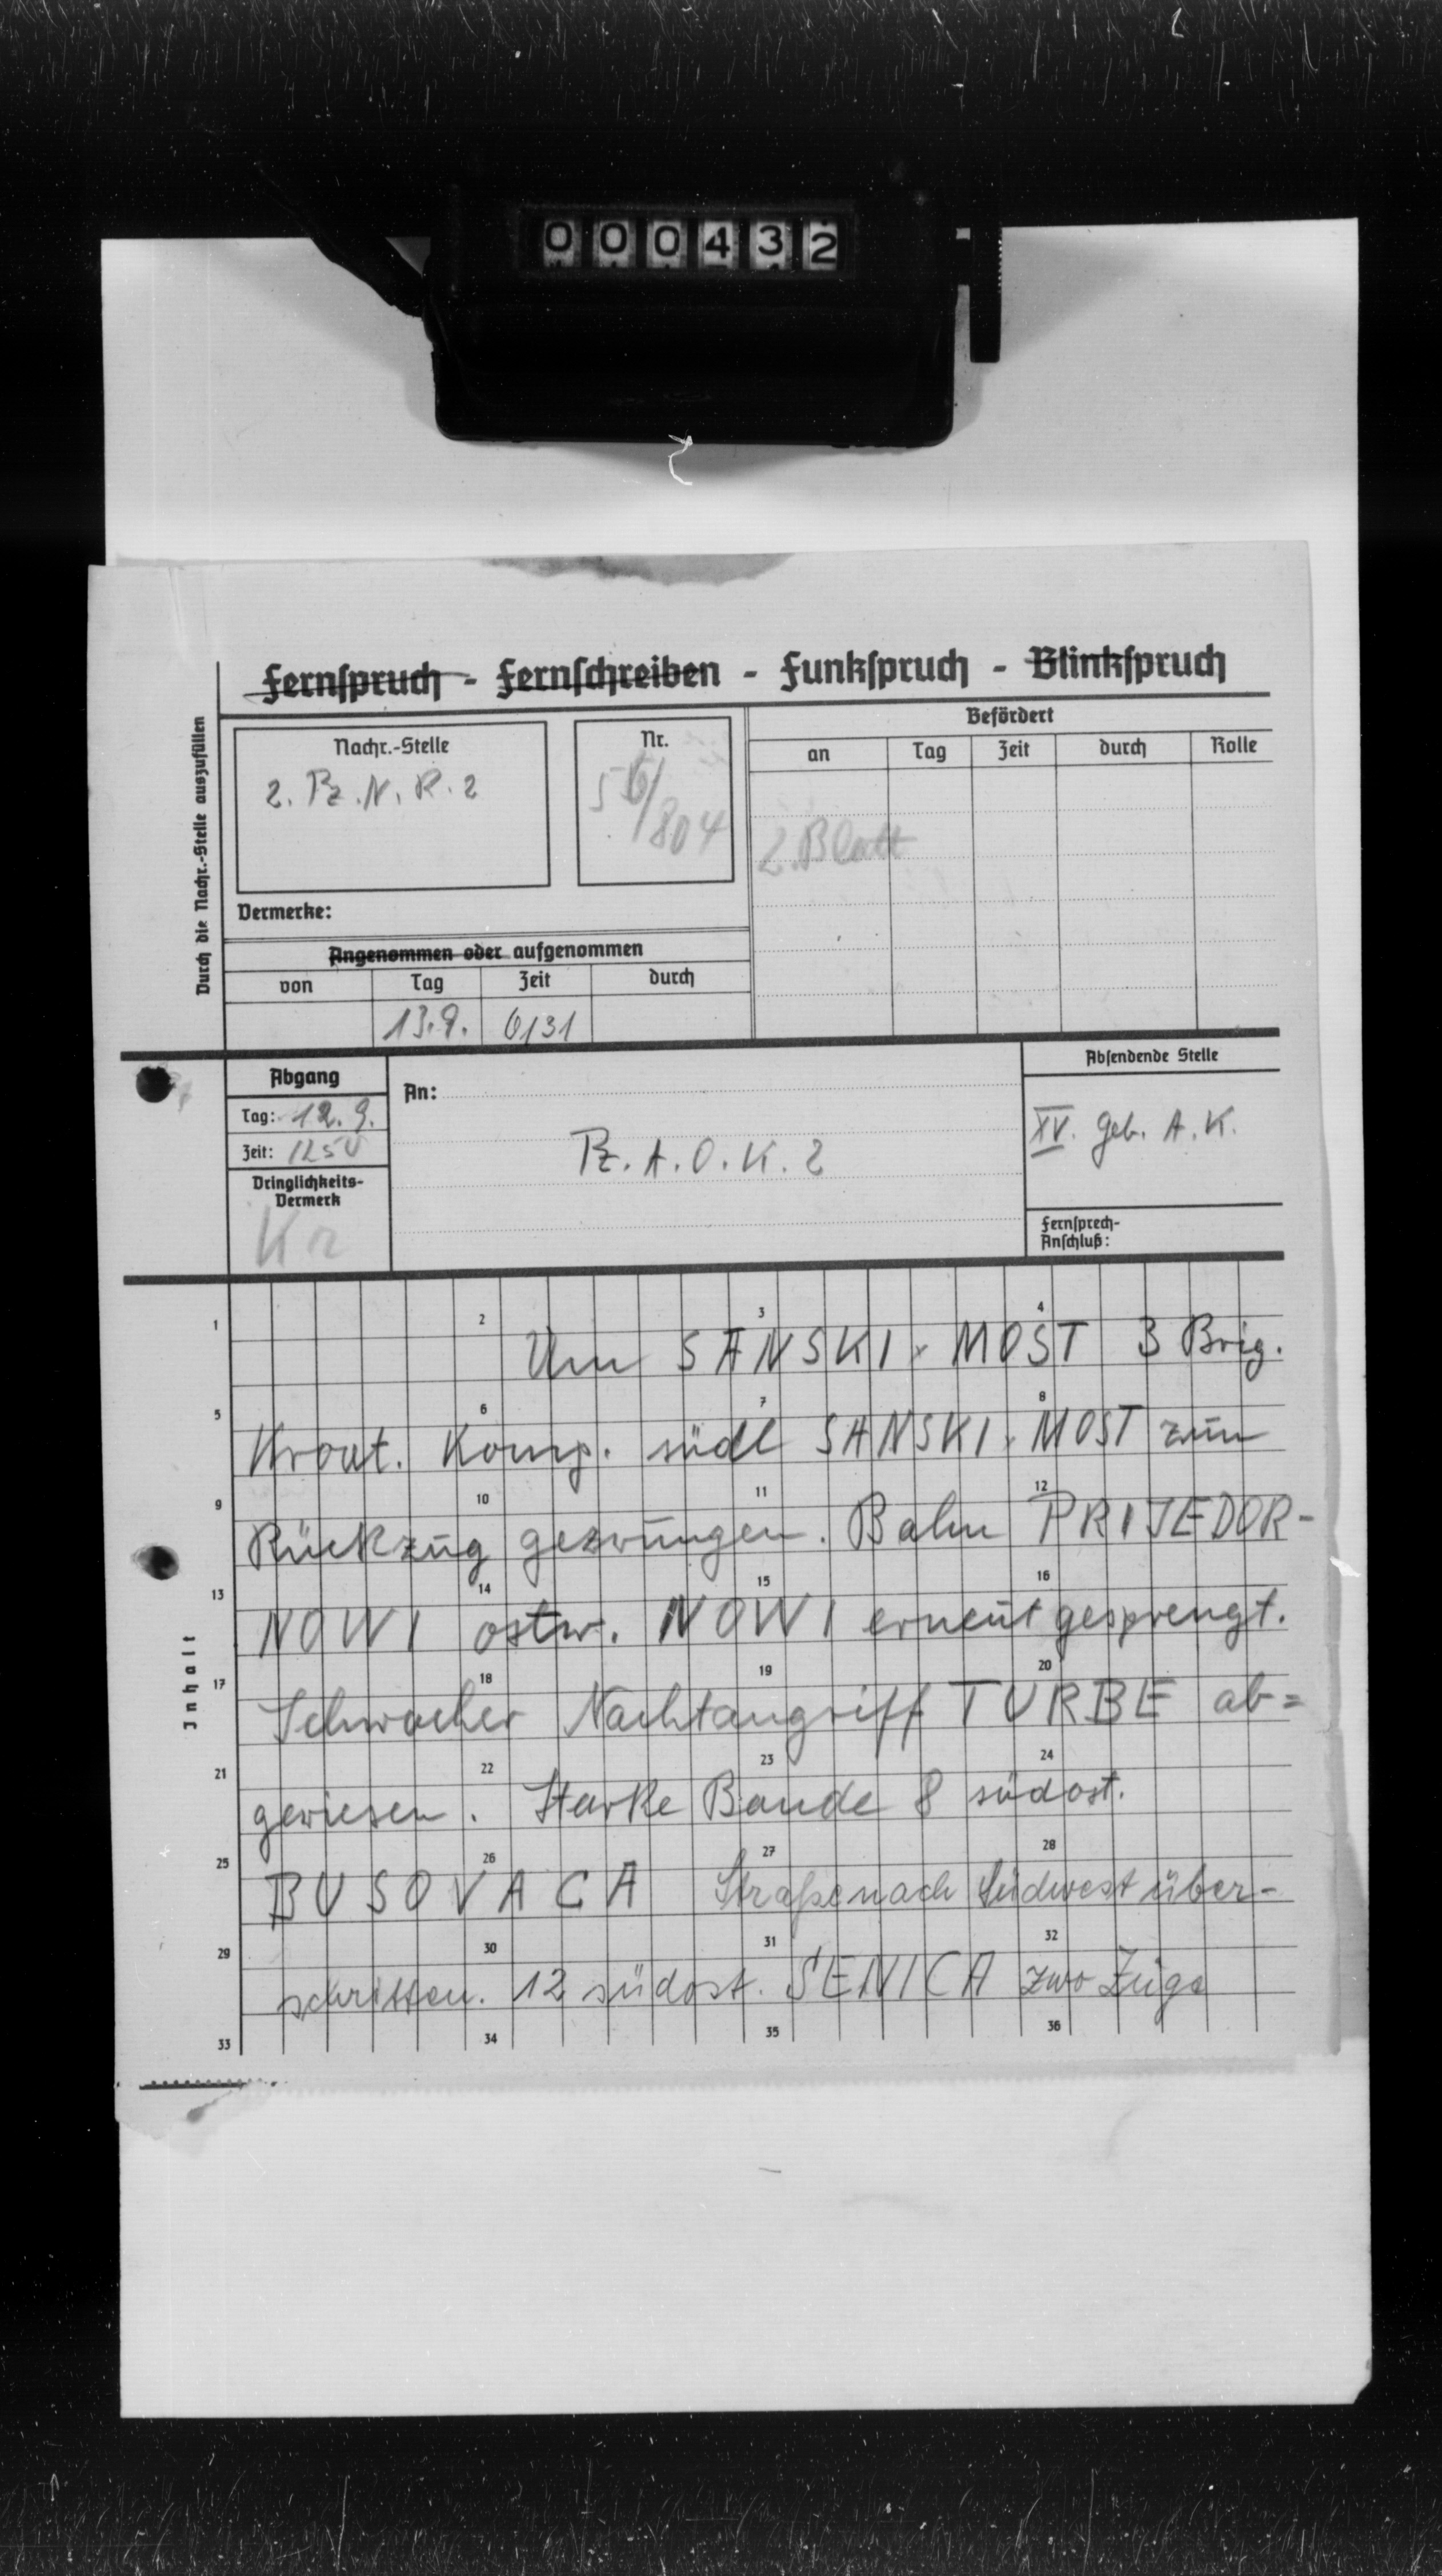 000432
Fernspruch - Fernschreiben - Funkspruch - Blinkspruch
Durch die Nachr.-Stelle auszufüllen
Nachr.-Stelle
2. Pz. N. R. 2
Nr.
/804
Befördert
an Tag Zeit durch Rolle
2. Blatt
Vermerke:
Angenommen oder aufgenommen
von Tag Zeit durch
13.9. 0131
Abgang
Tag: 12.9.
Zeit: 1250
Dringlichkeits-
Vermerk
Kr
An:
Pz. A. O. K. 2
Absendende Stelle
XV. Geb. A. K.
Fernsprech-
Anschluß:
Inhalt
1 2 3 4
Um SANSKI. MOST 3 Brig.
5 6 7 8
Kroat. Komp. südl SANSKI. MOST zum
9 10 11 12
Rückzug gezwungen. Bahn PRIJEDOR-
13 14 15 16
NOWI ostw. NOWI erneut gesprengt.
17 18 19 20
Schwacher Nachtangriff TURBE ab=
21 22 23 24
gewiesen. Starke Bande 8 südost.
25 26 27 28
BUSOVACA Straße nach Südwest über-
29 30 31 32
schritten. 12 südost. SENICA zwo Züge
33 34 35 36